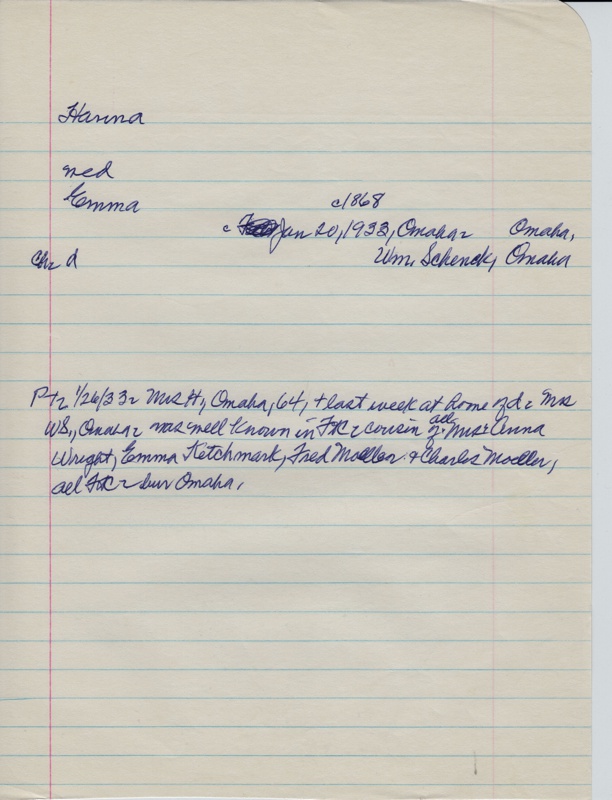 Hanna
med
Emma
c1868
c Jan 20, 1933, Omaha Omaha,
Ch: d Wm. Schenck, Omaha
1/26/33 Mrs H, Omaha, 64, + last week at home of d: Mrs
WS, Omaha was well known in cousin of all Mrs Anna
Wright, Emma Ketchmark, Fred Moeller & Charles Moeller,
all bur Omaha.